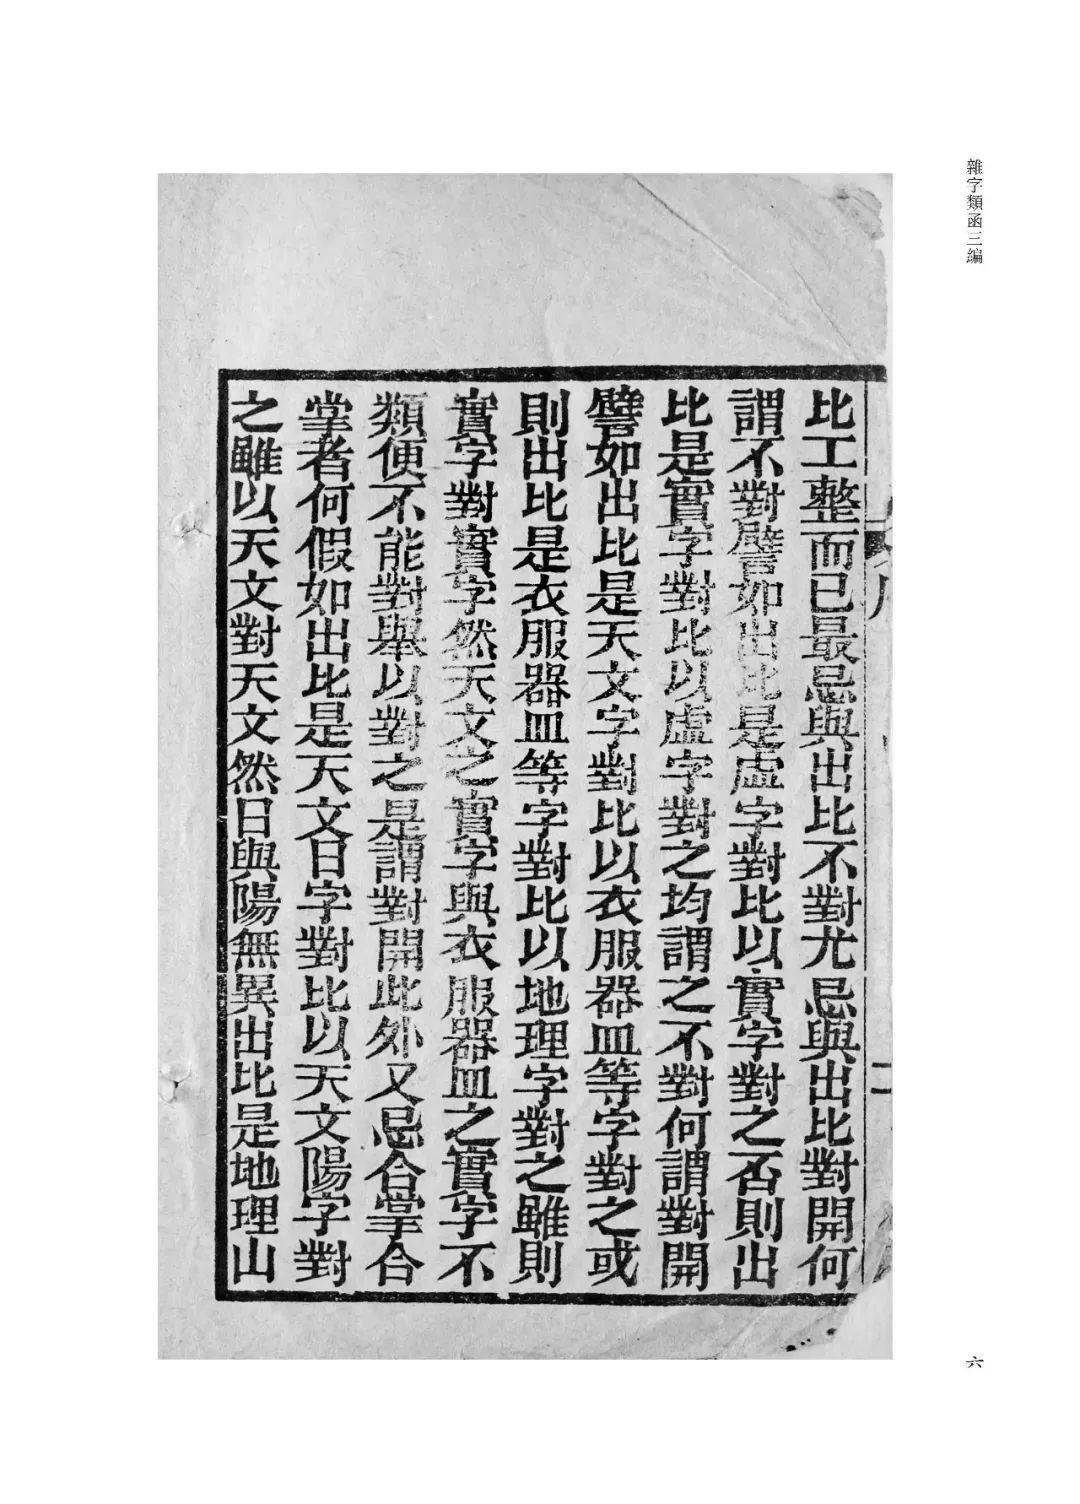 雜字類函三編
比工整而已最忌與出比不對尤忌與出比對開何
謂不對譬如出比是虛字對比以實字對之否則出
比是實字對比以虛字對之均謂之不對何謂對開
譬如出比是天文字對比以衣服器皿等字對之或
則出比是衣服器皿等字對比以地理字對之雖則
實字對實字然天文之實字與衣服器皿之實字不
類便不能對舉以對之是謂對開此外又忌合掌合
掌者何假如出比是天文日字對比以天文陽字對
之雖以天文對天文然日與陽無異出比是地理山
六